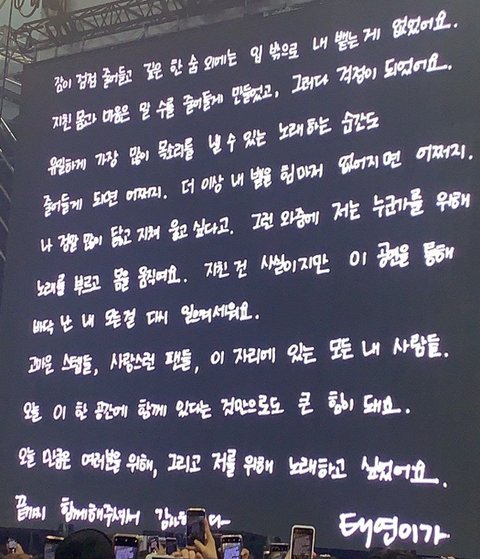 잠이 점점 줄어들고 깊은 한 숨 외에는 입 밖으로 내 뱉는 게 없었어요.
지친 몸과 마음은 말 수를 줄어들게 만들었고, 그러다 걱정이 되었어요.
유일하게 가장 많이 목소리를 낼 수 있는 노래하는 순간도
줄어들게 되면 어쩌지. 더 이상 내 뱉을 힘마저 없어지면 어쩌지.
나 정말 많이 닳고 지쳐 울고 싶다고. 그런 와중에 저는 누군가를 위해
노래를 부르고 몸을 움직여요. 지친 건 사실이지만 이 공연을 통해
바닥 난 내 모든걸 다시 일으켜세워요.
고마운 스텝들, 사랑스런 팬들, 이 자리에 있는 모든 내 사람들.
오늘 이 한 공간에 함께 있다는 것만으로도 큰 힘이 돼요.
오늘 만큼은 여러분을 위해, 그리고 저를 위해 노래하고 싶었어요.
끝까지 함께해주셔서
태연이가